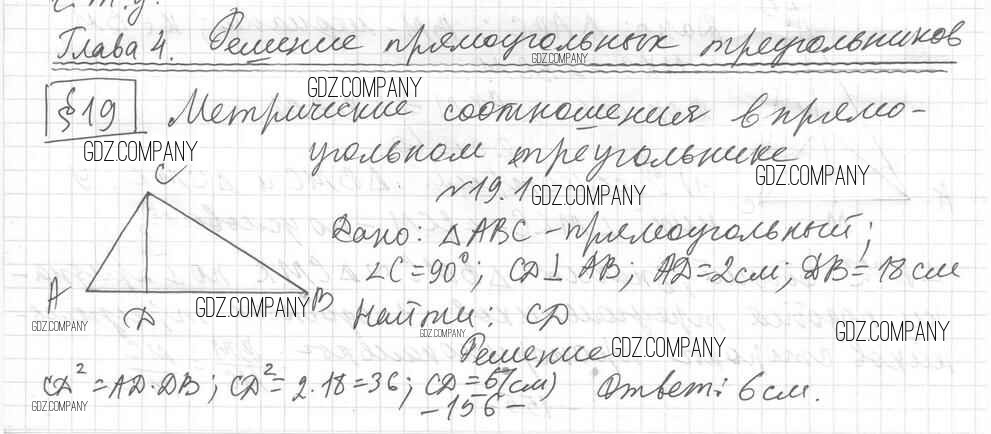 и т.д.
Глава 4. Решение прямоугольных треугольников
GDZ.COMPANY
GDZ.COMPANY
§ 19 Метрические соотношения в прямо-
GDZ.COMPANY
угольном треугольнике
GDZ.COMPANY
№19.1
GDZ.COMPANY
C
Дано: △ABC – прямоугольный;
∠C = 90°; CD ⊥ AB; AD = 2 см; DB = 18 см
A
B
D
GDZ.COMPANY
GDZ.COMPANY
Найти: CD
GDZ.COMPANY
GDZ.COMPANY
Решение
GDZ.COMPANY
CD² = AD · DB; CD² = 2 · 18 = 36; CD = 6 (см) Ответ: 6 см.
GDZ.COMPANY
– 156 –